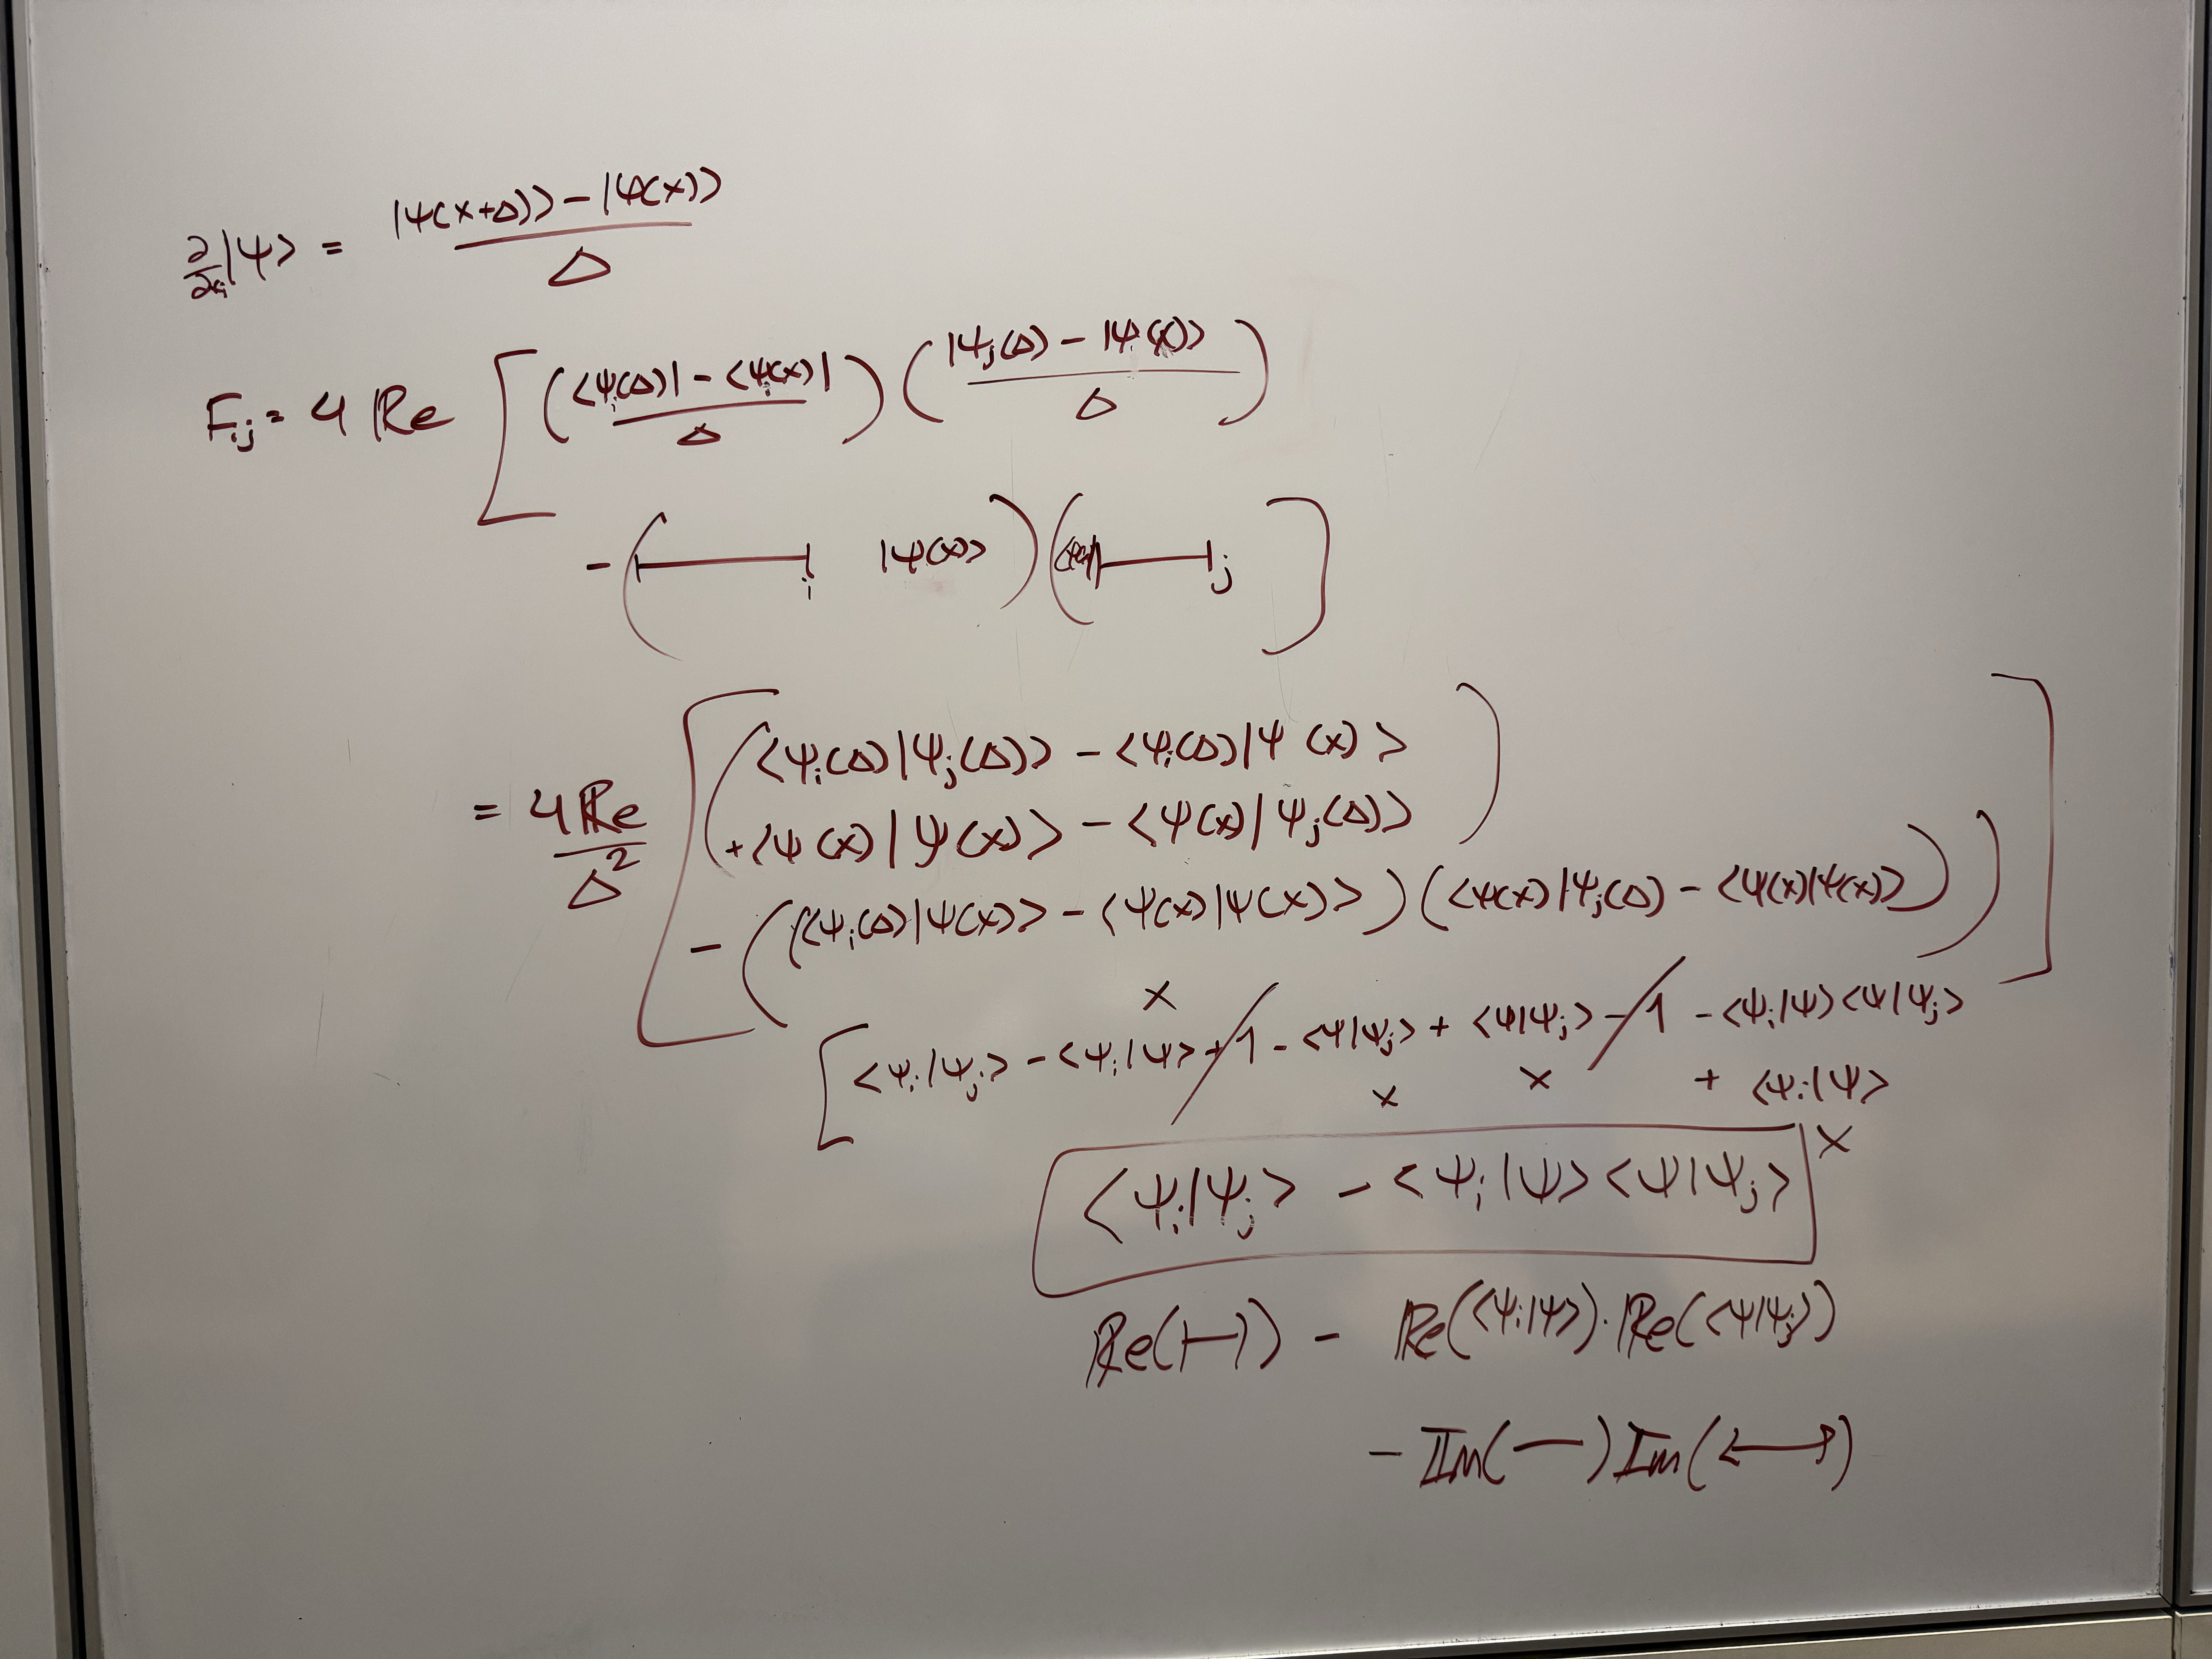 ∂/∂xᵢ |ψ> = (|ψ(x+Δ)> − |ψ(x)>) / Δ
Fᵢⱼ = 4 Re [ ((<ψᵢ(Δ)| − <ψ(x)|) / Δ) ((|ψⱼ(Δ) − |ψ(x)>) / Δ)
− ( |——|ᵢ |ψ(x)> ) ( |——|ⱼ ]
= 4 Re / Δ² [ ( <ψᵢ(Δ)|ψⱼ(Δ)> − <ψᵢ(Δ)|ψ(x)>
+ <ψ(x)|ψ(x)> − <ψ(x)|ψⱼ(Δ)> )
− ( (<ψᵢ(Δ)|ψ(x)> − <ψ(x)|ψ(x)>) (<ψ(x)|ψⱼ(Δ) − <ψ(x)|ψ(x)>) ) ]
[ <ψᵢ|ψⱼ> − <ψᵢ|ψ> + 1 − <ψ|ψⱼ> + <ψ|ψⱼ> − 1 − <ψᵢ|ψ><ψ|ψⱼ>
x x x + <ψᵢ|ψ>
x
<ψᵢ|ψⱼ> − <ψᵢ|ψ><ψ|ψⱼ>
Re(|—|) − Re(<ψᵢ|ψ>)·Re(<ψ|ψⱼ>)
− Im(—) Im(<—>)